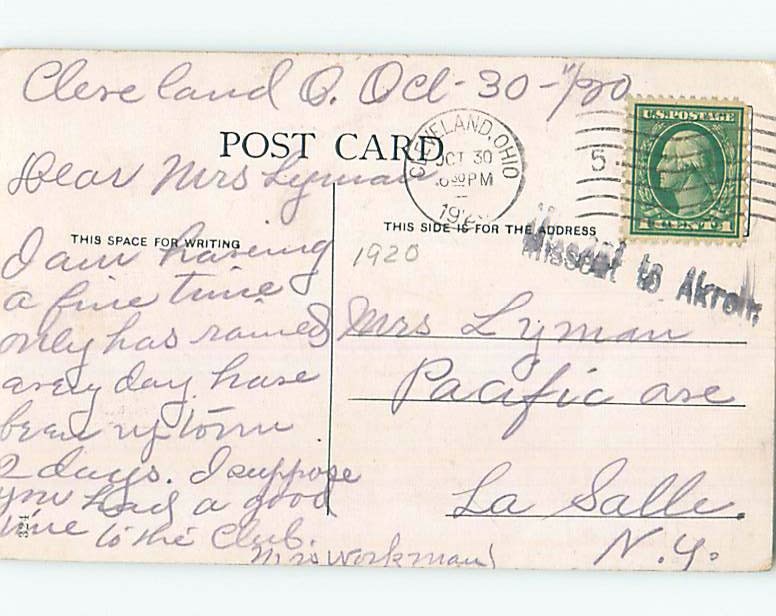 Cleveland O. Oct-30-1920
POST CARD
CLEVELAND, OHIO
OCT 30
630 PM
192
5
U.S. POSTAGE
CENTS
Dear Mrs Lyman
THIS SPACE FOR WRITING
I am having
a fine time
only has rained
every day have
been up town
2 days. I suppose
you had a good
time to the Club.
Mrs Workman
324
THIS SIDE IS FOR THE ADDRESS
1920
Missent to Akron,
Mrs Lyman
Pacific ave
La Salle.
N.Y.